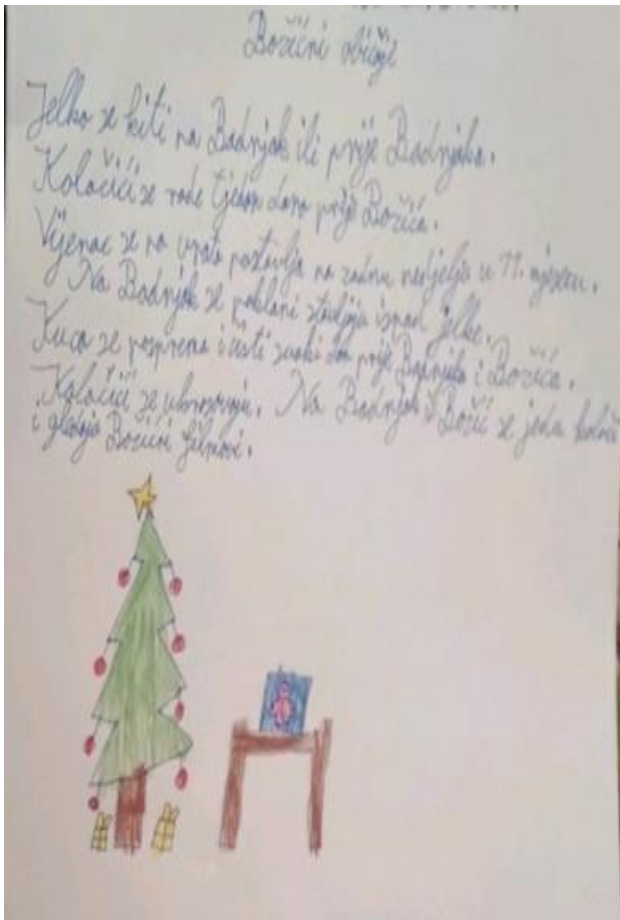 Božićni običaji
Jelka se kiti na Badnjak ili prije Badnjaka.
Kolačići se rade tjedan dana prije Božića.
Vijenac se na vrata postavlja na zadnu nedjelju u 11. mjesecu.
Na Badnjak se pokloni stavljaju ispod jelke.
Kuca se posprema i čisti svaki dan prije Badnjaka i Božića.
Kolačići se ukrašavaju. Na Badnjak i Božić se jedu kolači
i gledaju Božićni filmovi.